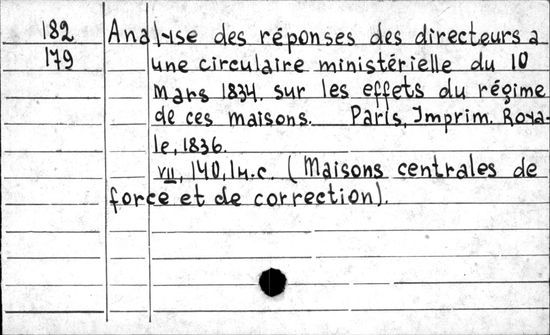 182 Analyse des réponses des directeurs a
179 une circulaire ministérielle du 10
Mars 1834. sur les effets du régime
de ces maisons. Paris, Imprim. Roya-
le, 1836.
VII, 140, 1н.с. (Maisons centrales de
force et de correction).